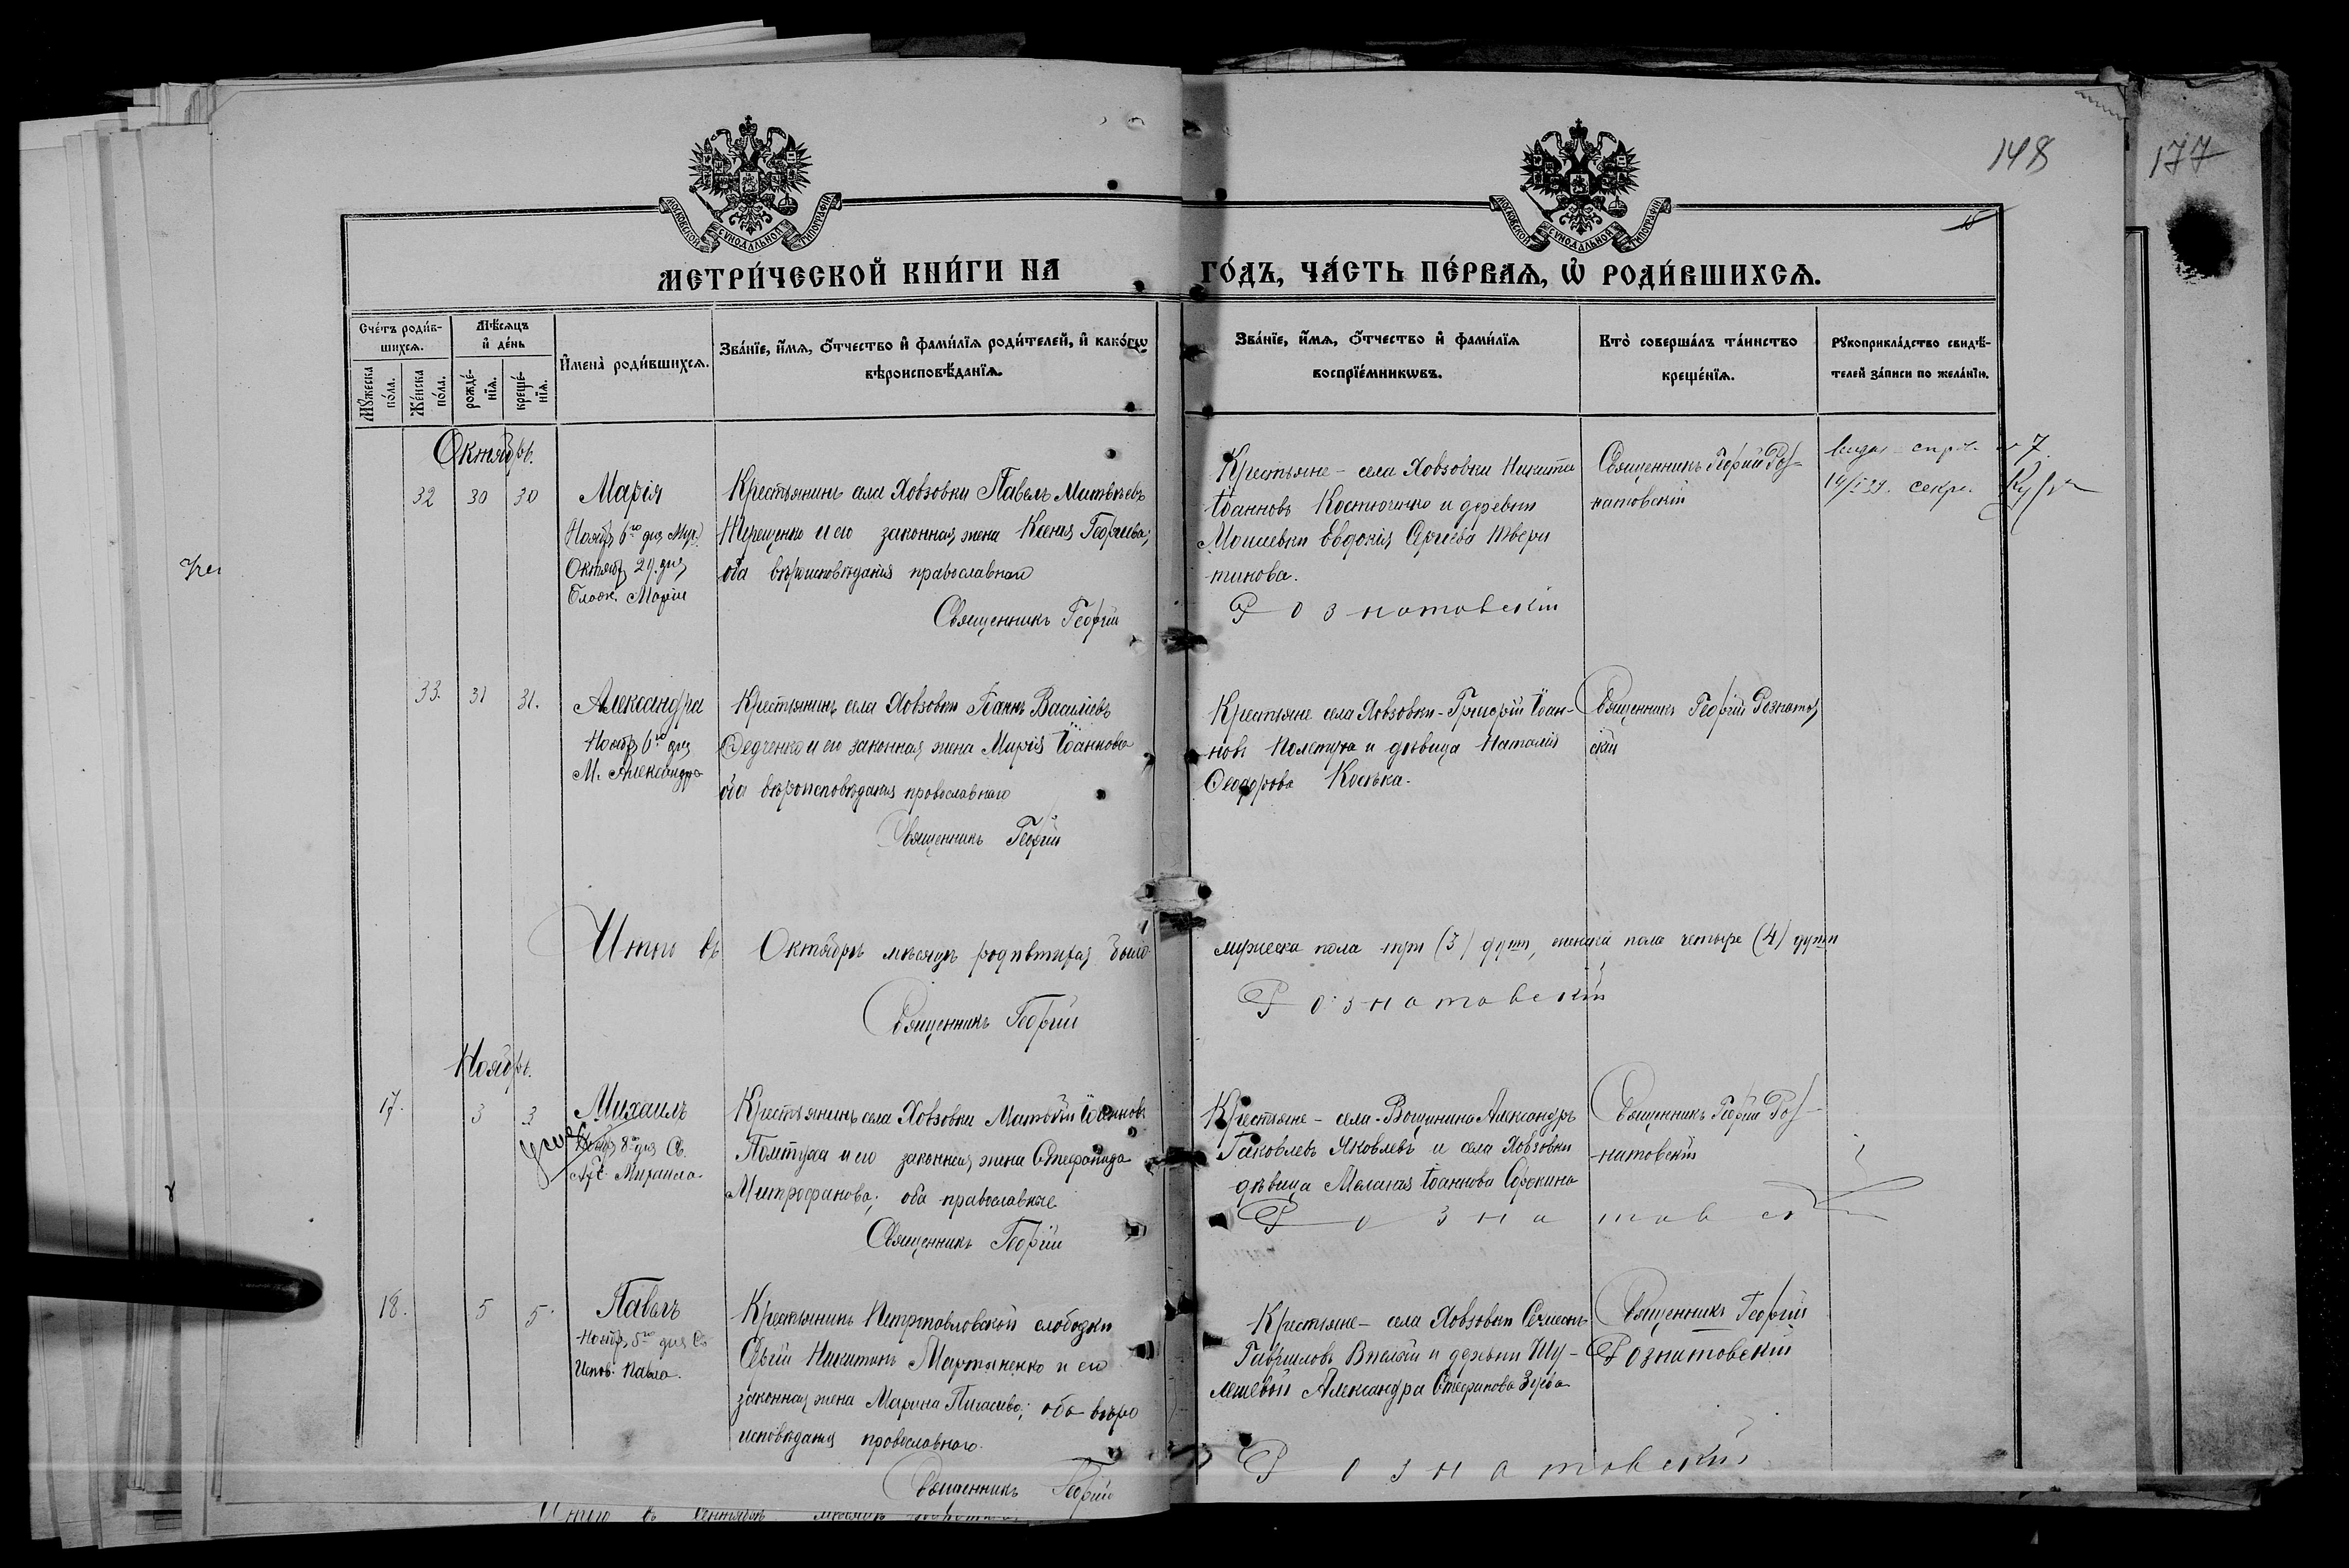 148
177
МОСКОВСКОЙ СѴНОДАЛЬНОЙ ТИПОГРАФІИ
МОСКОВСКОЙ СѴНОДАЛЬНОЙ ТИПОГРАФІИ
МЕТРИ́ЧЕСКОЙ КНИ́ГИ НА
ГО́ДЪ, ЧА́СТЬ ПЕ́РВАѦ, Ѡ РОДИ́ВШИХСѦ.
Сче́тъ роди́в-
шихсѧ.
Мꙋ́жеска по́ла.
Же́нска по́ла.
Мѣ́сѧцъ
и҆ де́нь
рожде́-
нїѧ.
креще́-
нїѧ.
И҆мена̀ роди́вшихсѧ.
Зва́нїе, и҆́мѧ, ѻ҆́тчество и҆ фами́лїѧ роди́телей, и҆ како́гѡ
вѣроисповѣ́данїѧ.
Зва́нїе, и҆́мѧ, ѻ҆́тчество и҆ фами́лїѧ
воспрїе́мникѡвъ.
Кто̀ соверша́лъ та́инство
креще́нїѧ.
Рꙋкоприкла́дство свидѣ́-
телей за́писи по жела́нїю.
Октябрь.
32 30 30
Марія
Ноябр. 6го дня
Октябр. 29. дня
Блаж. Маріи
Крестьянинъ села Ховзовки Павелъ Матвѣевъ
Терещенко и его законная жена Ксенія Георгіева;
оба вѣроисповѣданія православнаго
Священникъ Георгій
Крестьяне - села Ховзовки Никита
Іоанновъ Костюченко и деревни
Моисеевки Евдокія Сергіева Твери
тинова.
Рознатовскій
Священникъ Георгій Роз-
натовскій
33. 31 31.
Александра
Ноябр. 6го дня
М. Александра
Крестьянинъ села Ховзовки Іоаннъ Василіевъ
Федченко и его законная жена Марія Іоаннова
оба вѣроисповѣданія православнаго
Священникъ Георгій
Крестьяне села Ховзовки - Григорій Іоан-
новъ Полетуха и дѣвица Наталія
Ѳеодорова Коська.
Священникъ Георгій Рознатов
скій
Итого въ Октябрѣ мѣсяцѣ родившихся было
мужеска пола три (3) душ, женска пола четыре (4) души
Священникъ Георгій
Рознатовскій
Ноябрь.
17. 3 3
Михаилъ
Ноябр. 8го дня Св.
Арх. Михаила.
Крестьянинъ села Ховзовки Матѳій Іоанновъ
Полтуха и его законная жена Стефанида
Митрофанова; оба православные
Священникъ Георгій
Крестьяне - села Вощинина Александръ
Іаковлевъ Яковлевъ и села Ховзовки
дѣвица Меланія Іоаннова Сорокина
Рознатовск
Священникъ Георгій Роз-
натовскій
18. 5 5.
Павелъ
Ноябр. 5го дня Св.
Испов. Павла.
Крестьянинъ Петропавловской слободки
Сергій Никитинъ Мартыненко и его
законная жена Марина Пигасиева; оба вѣро
исповѣданія православнаго.
Священникъ Георгій
Крестьяне - села Ховзовки Семеонъ
Гавриловъ и деревни Шу-
лешевой Александра Стефанова
Рознатовскій
Священникъ Георгій
Рознатовскій
Итого въ Сентябрѣ мѣсяцѣ